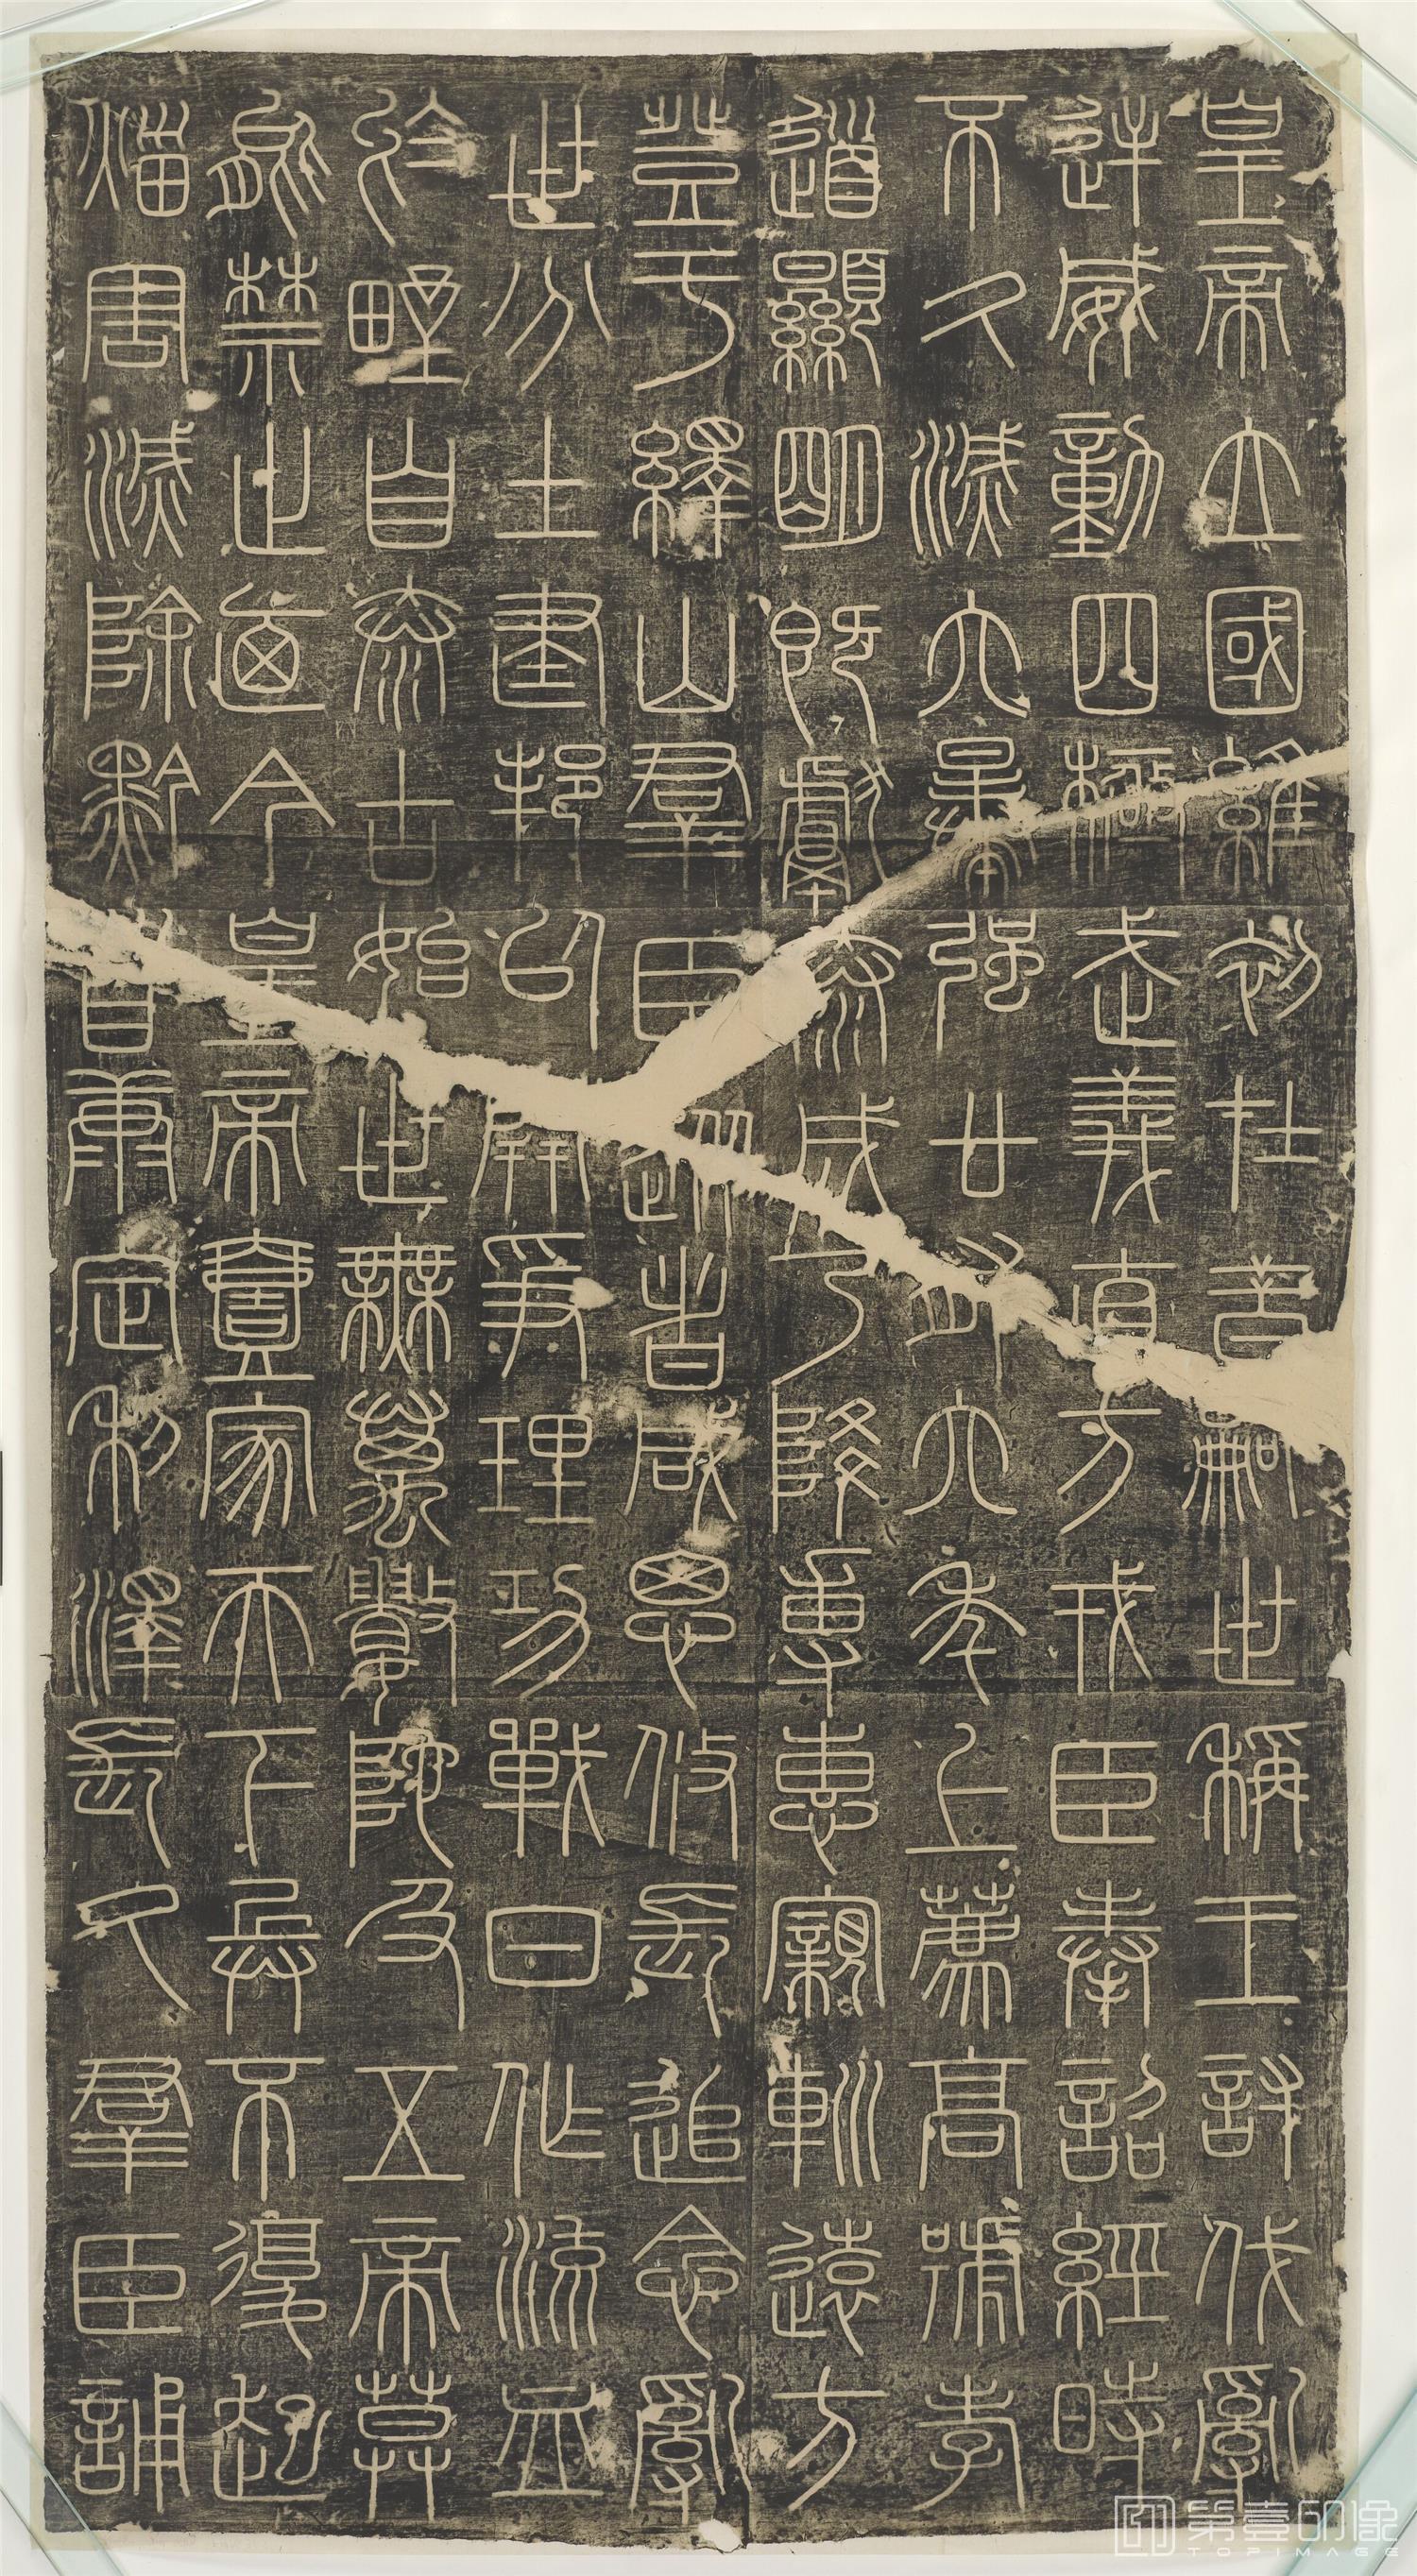 皇帝立國維初在昔嗣世稱王討伐亂
逆威動四極武義直方戎臣奉詔經時
不久滅六暴强廿有六年上薦高號孝
道顯明既獻泰成乃降專惠親巡遠方
登于繹山群臣從者咸思攸長追念亂
世分土建邦以開爭理功戰日作流血
於野自泰古始世無萬數陀及五帝莫
能禁止迺今皇帝壹家天下兵不復起
災害滅除黔首康定利澤長久群臣誦
第壹印像
TOPIMAGE